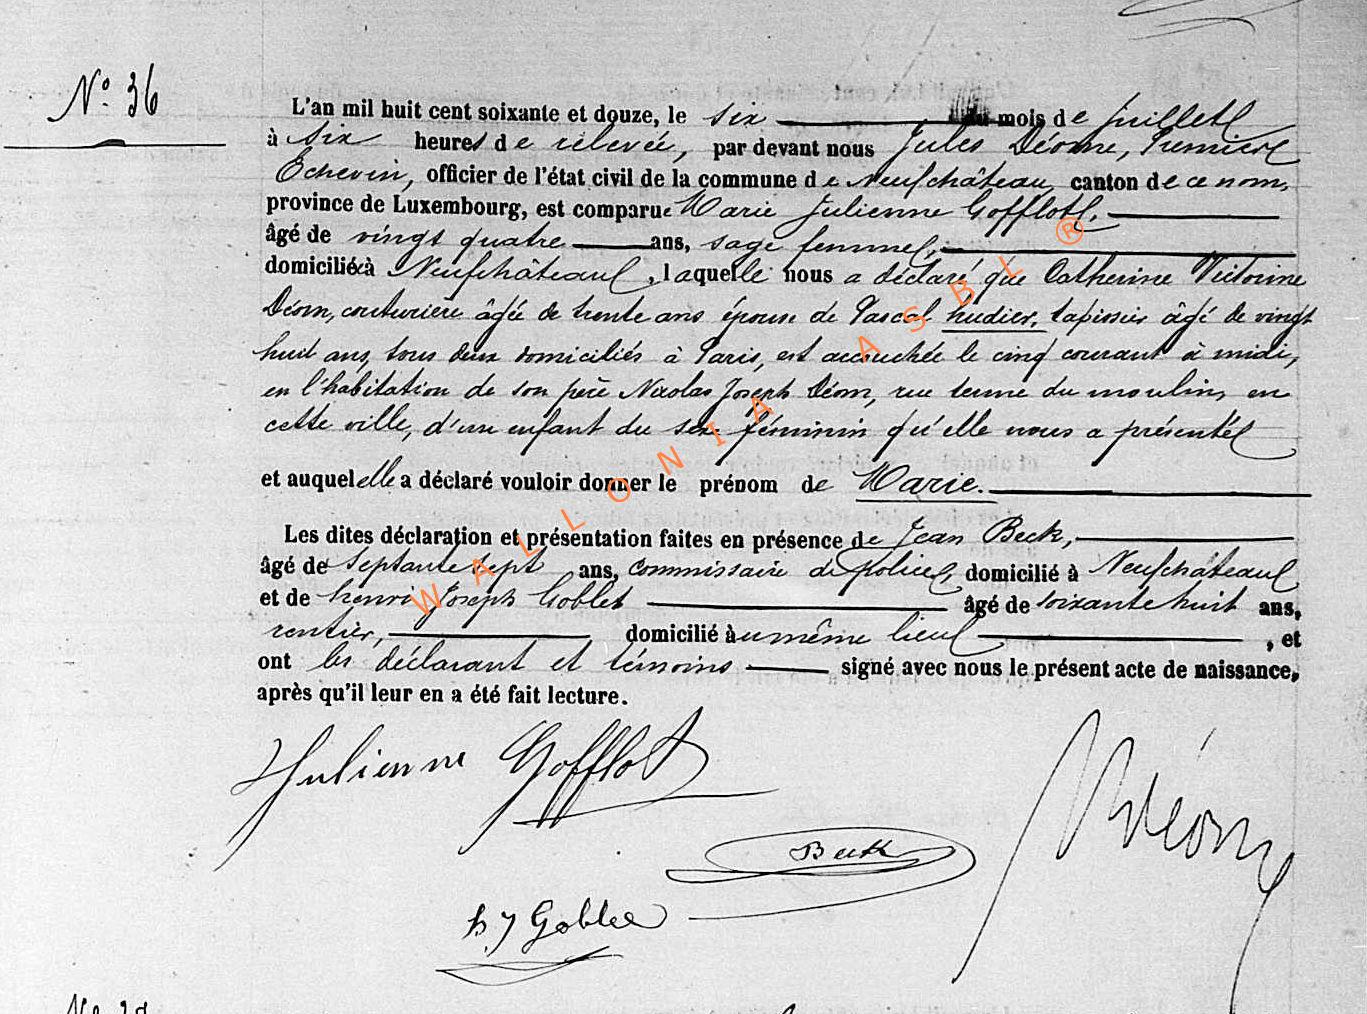 N° 36
L'an mil huit cent soixante et douze, le six du mois de juillet
à six heures de relevée, par devant nous Jules Déome, Premier
Echevin, officier de l'état civil de la commune de Neufchâteau, canton de ce nom,
province de Luxembourg, est comparue Marie Julienne Gofflot,
âgé de vingt quatre ans, sage femme,
domiciliée à Neufchâteau, laquelle nous a déclaré que Catherine Victorine
Déom, couturière âgée de trente ans épouse de Pascal hudier, tapissier âgé de vingt
huit ans, tous deux domiciliés à Paris, est accouchée le cinq courant à midi,
en l'habitation de son père Nicolas Joseph Déom, rue tenne du moulin, en
cette ville, d'un enfant du sexe féminin qu'elle nous a présenté
et auquel elle a déclaré vouloir donner le prénom de Marie.
Les dites déclaration et présentation faites en présence de Jean Beck,
âgé de septante sept ans, commissaire de police, domicilié à Neufchâteau
et de henri Joseph Goblet âgé de soixante huit ans,
rentier, domicilié au même lieu, et
ont les déclarant et témoins signé avec nous le présent acte de naissance,
après qu'il leur en a été fait lecture.
Julienne Gofflot
Déome
Beck
h. J Goblet
WALLONIA ASBL ®